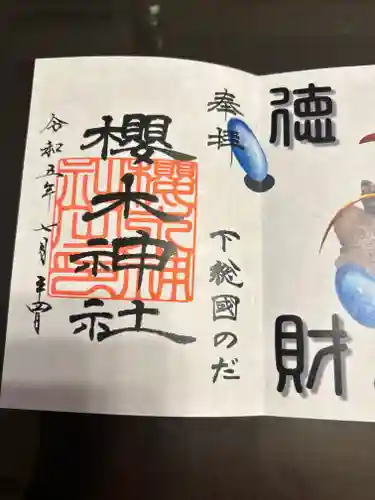 徳
財
奉拝
下総國のだ
櫻木神社
櫻木神社之印
令和五年 七月 廿四日